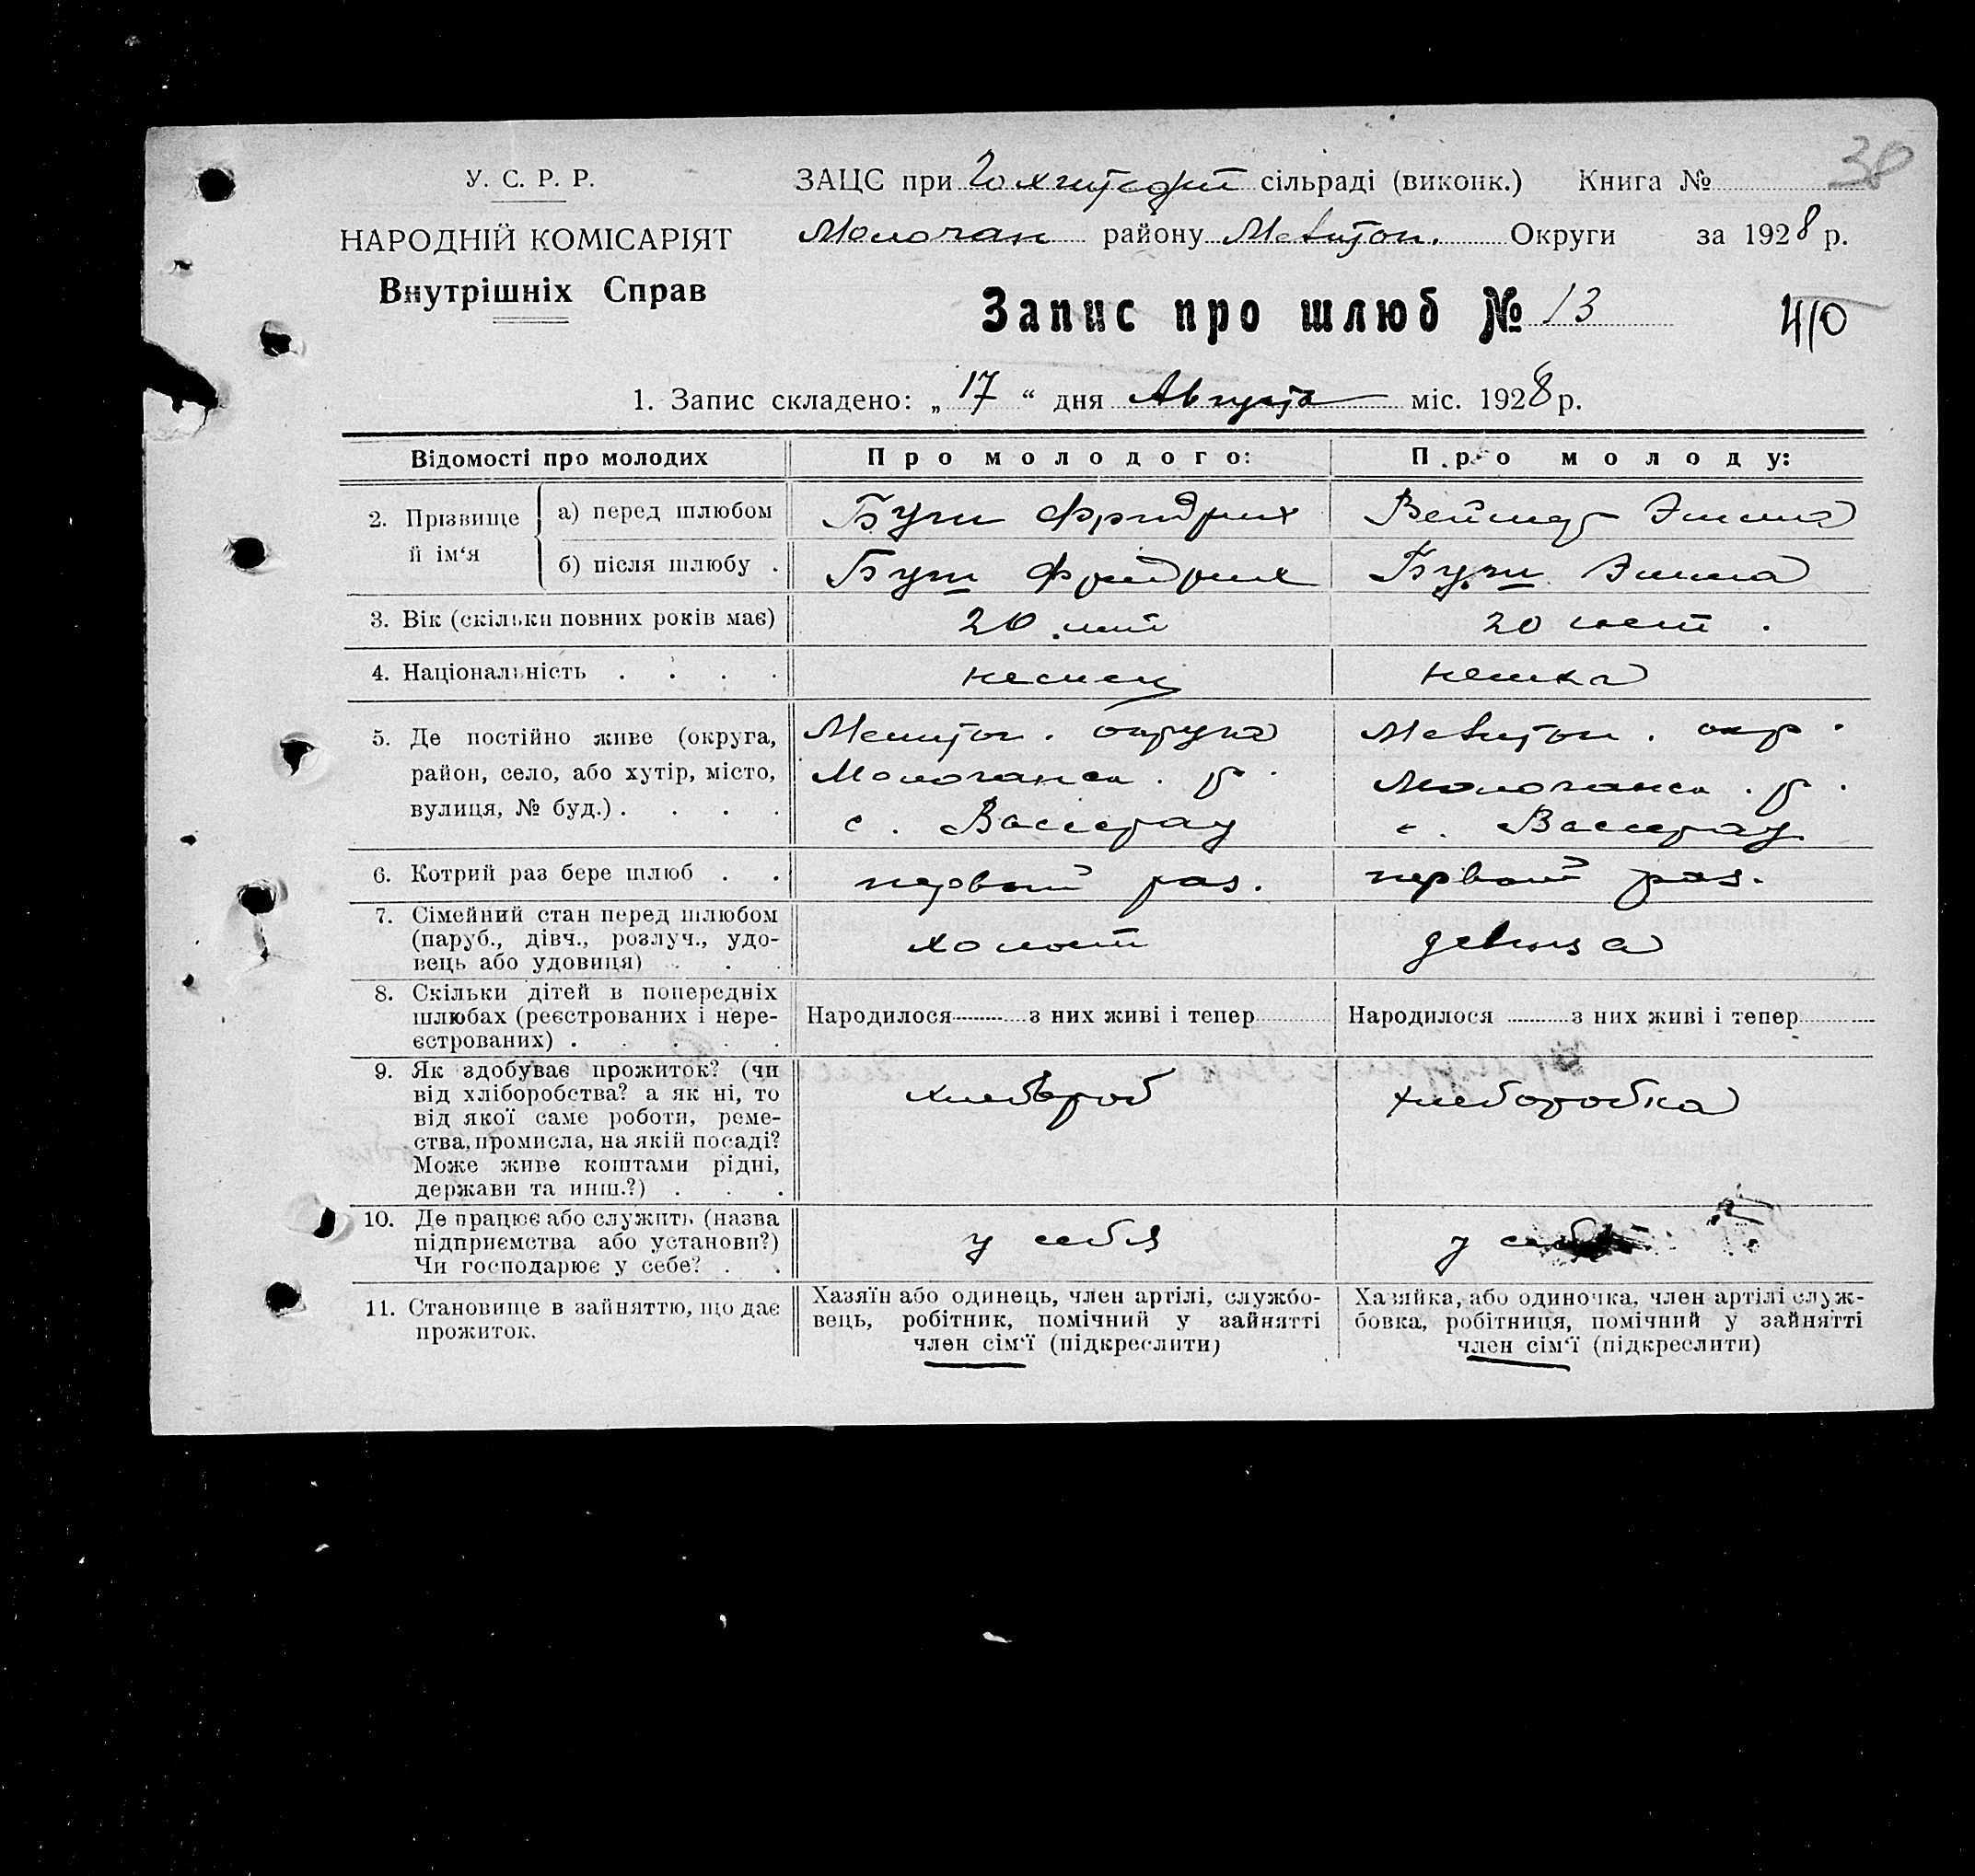 38
У. С. Р. Р.
ЗАЦС при Гохштедт сільраді (виконк.) Книга №
НАРОДНІЙ КОМІСАРІЯТ
Молочан району Мелитоп. Округи за 1928 р.
Внутрішніх Справ
Запис про шлюб № 13
40
1. Запис складено: „17“ дня Августа міс. 1928 р.
Відомості про молодих Про молодого: Про молоду:
2. Прізвище й ім‘я
а) перед шлюбом Буш Фридрих Эмма
б) після шлюбу . Буш Фридрих Буш Эмма
3. Вік (скільки повних років має) 20 лет 20 лет .
4. Національність . . . . немец немка
5. Де постійно живе (округа, Мелитоп. округа Мелитоп. окр.
район, село, або хутір, місто, Молочанск. р. Молочанск. р.
вулиця, № буд.) . . . . с. Вассерау с. Вассерау
6. Котрий раз бере шлюб . . первый раз. первый раз.
7. Сімейний стан перед шлюбом
(паруб., дівч., розлуч., удо- холост девица
вець або удовиця) . . .
8. Скільки дітей в попередніх
шлюбах (реєстрованих і нере- Народилося з них живі і тепер Народилося з них живі і тепер
єстрованих) . . . . .
9. Як здобуває прожиток? (чи
від хліборобства? а як ні, то хлебороб хлеборобка
від якої саме роботи, реме-
ства, промисла, на якій посаді?
Може живе коштами рідні,
держави та инш.?) . . .
10. Де працює або служить (назва
підприємства або установи?) у себя у себя
Чи господарює у себе? . .
11. Становище в зайняттю, що дає
прожиток.
Хазяїн або одинець, член артілі, службо-
вець, робітник, помічний у зайнятті
член сім‘ї (підкреслити)
Хазяйка, або одиночка, член артілі служ-
бовка, робітниця, помічний у зайнятті
член сім‘ї (підкреслити)